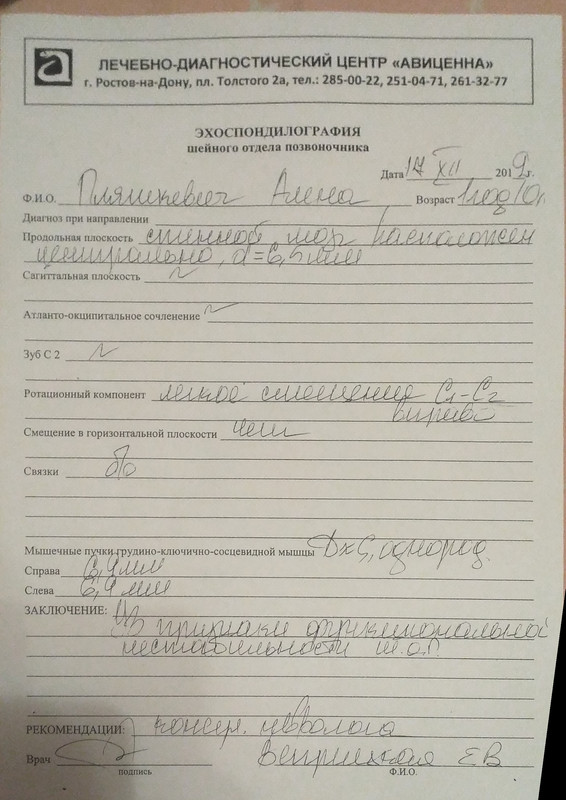 ЛЕЧЕБНО-ДИАГНОСТИЧЕСКИЙ ЦЕНТР «АВИЦЕННА»
г. Ростов-на-Дону, пл. Толстого 2а, тел.: 285-00-22, 251-04-71, 261-32-77
ЭХОСПОНДИЛОГРАФИЯ
шейного отдела позвоночника
Дата 17 XII 2019г.
Ф.И.О. Пляшкевич Алена Возраст 1год10м
Диагноз при направлении
Продольная плоскость спинной мозг расположен
центрально, d=6,5мм
Сагиттальная плоскость N
Атланто-окципитальное сочленение N
Зуб С 2 N
Ротационный компонент легкое смещение C1-C2
вправо
Смещение в горизонтальной плоскости нет
Связки б/о
Мышечные пучки грудино-ключично-сосцевидной мышцы D=S, однород.
Справа 6,9мм
Слева 6,9 мм
ЗАКЛЮЧЕНИЕ: УЗ признаки функциональной
нестабильности ш.о.п.
РЕКОМЕНДАЦИИ: консул. невролога
Врач ЕВ
подпись Ф.И.О.